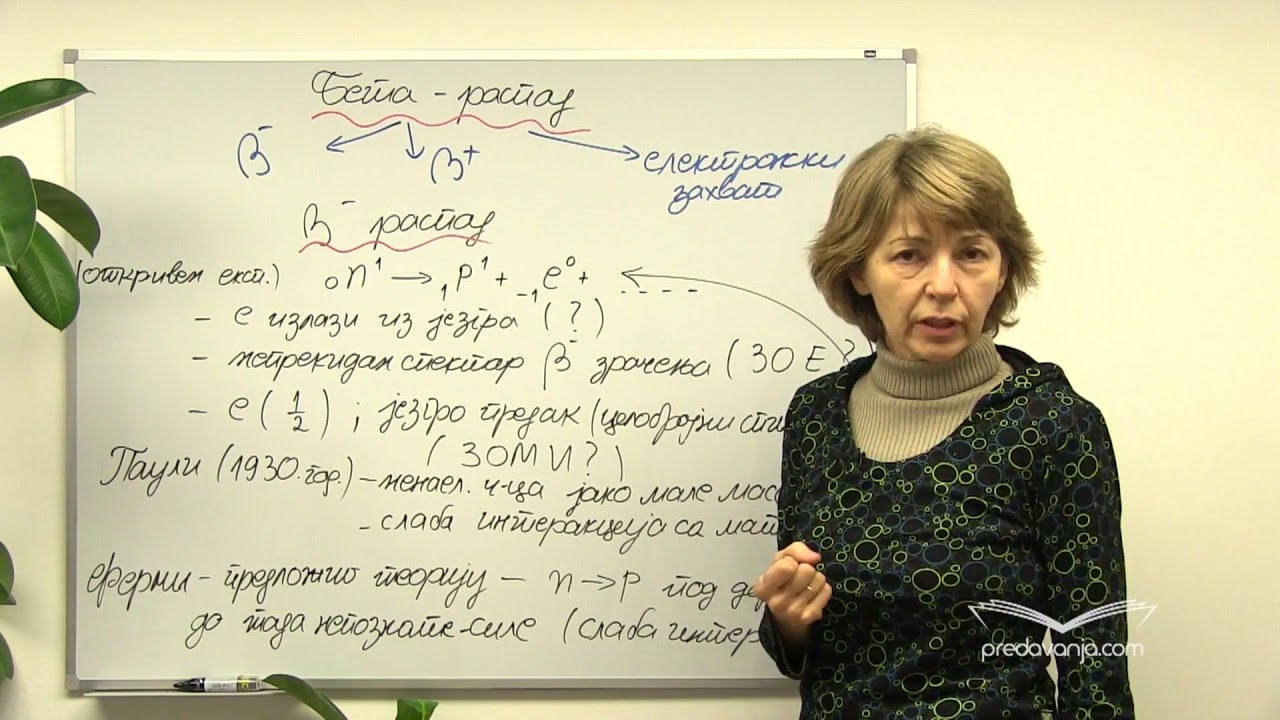 Бета-распад
β⁻ β⁺ електронски
захват
β⁻ распад
(откривен експ.) ₀n¹ → ₁p¹ + ₋₁e⁰ + - - - -
- e излази из језгра (?)
- непрекидан спектар β⁻ зрачења (ЗОЕ?
- e (1/2) ; језгро предак (целобројни спин
(ЗОМИ?)
Паули (1930. год.) - ненаел. ч-ца јако мале мас
- слаба интеракција са мат
Ферми - предложио теорију - n→p под де
до тада непознате силе (слаба интер
predavanja.com